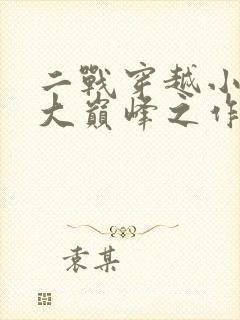 二戰穿越小
大巔峰之作
袁某